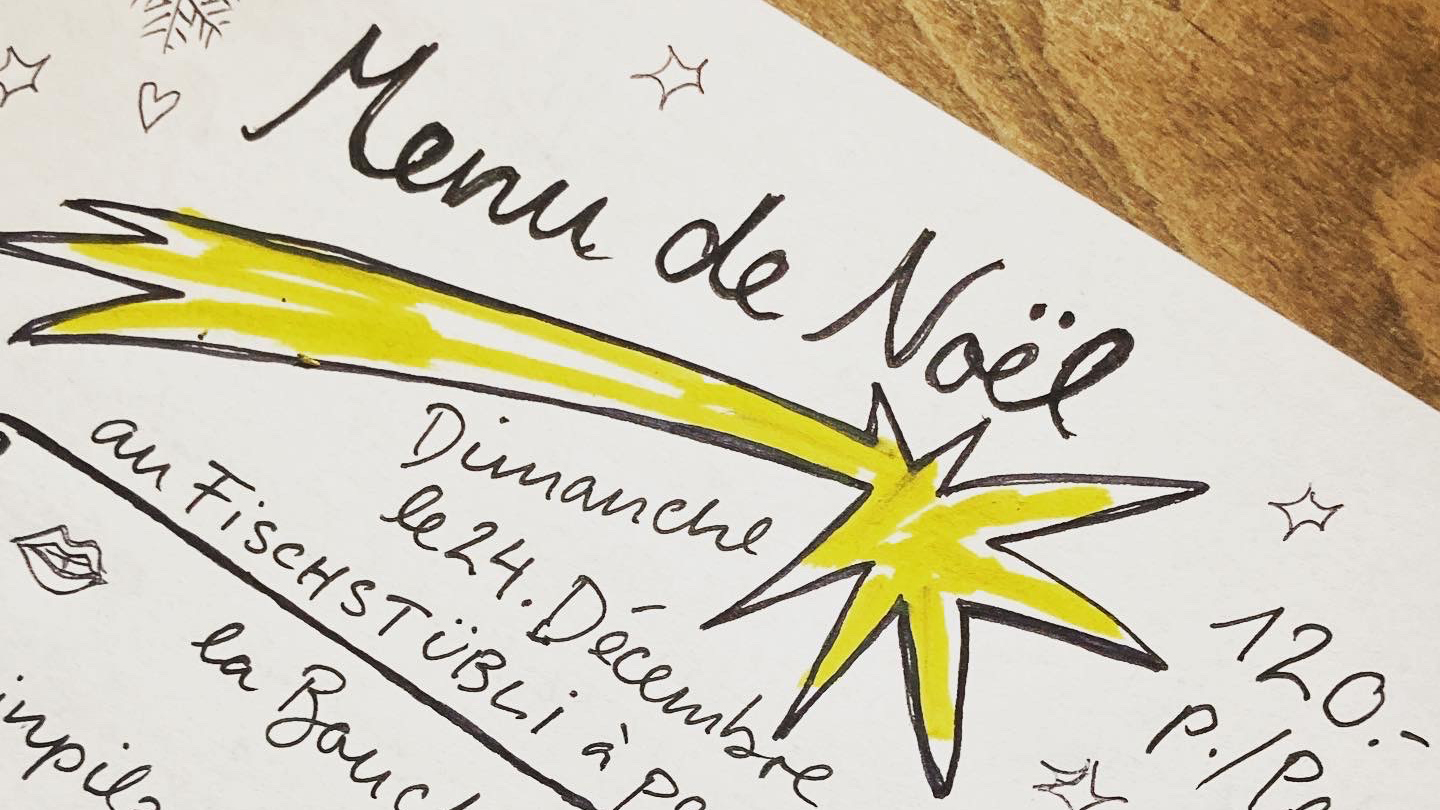 Menu de Noël
Dimanche
le 24. Décembre
au FISCHSTÜBLI à
la
120.-
p./